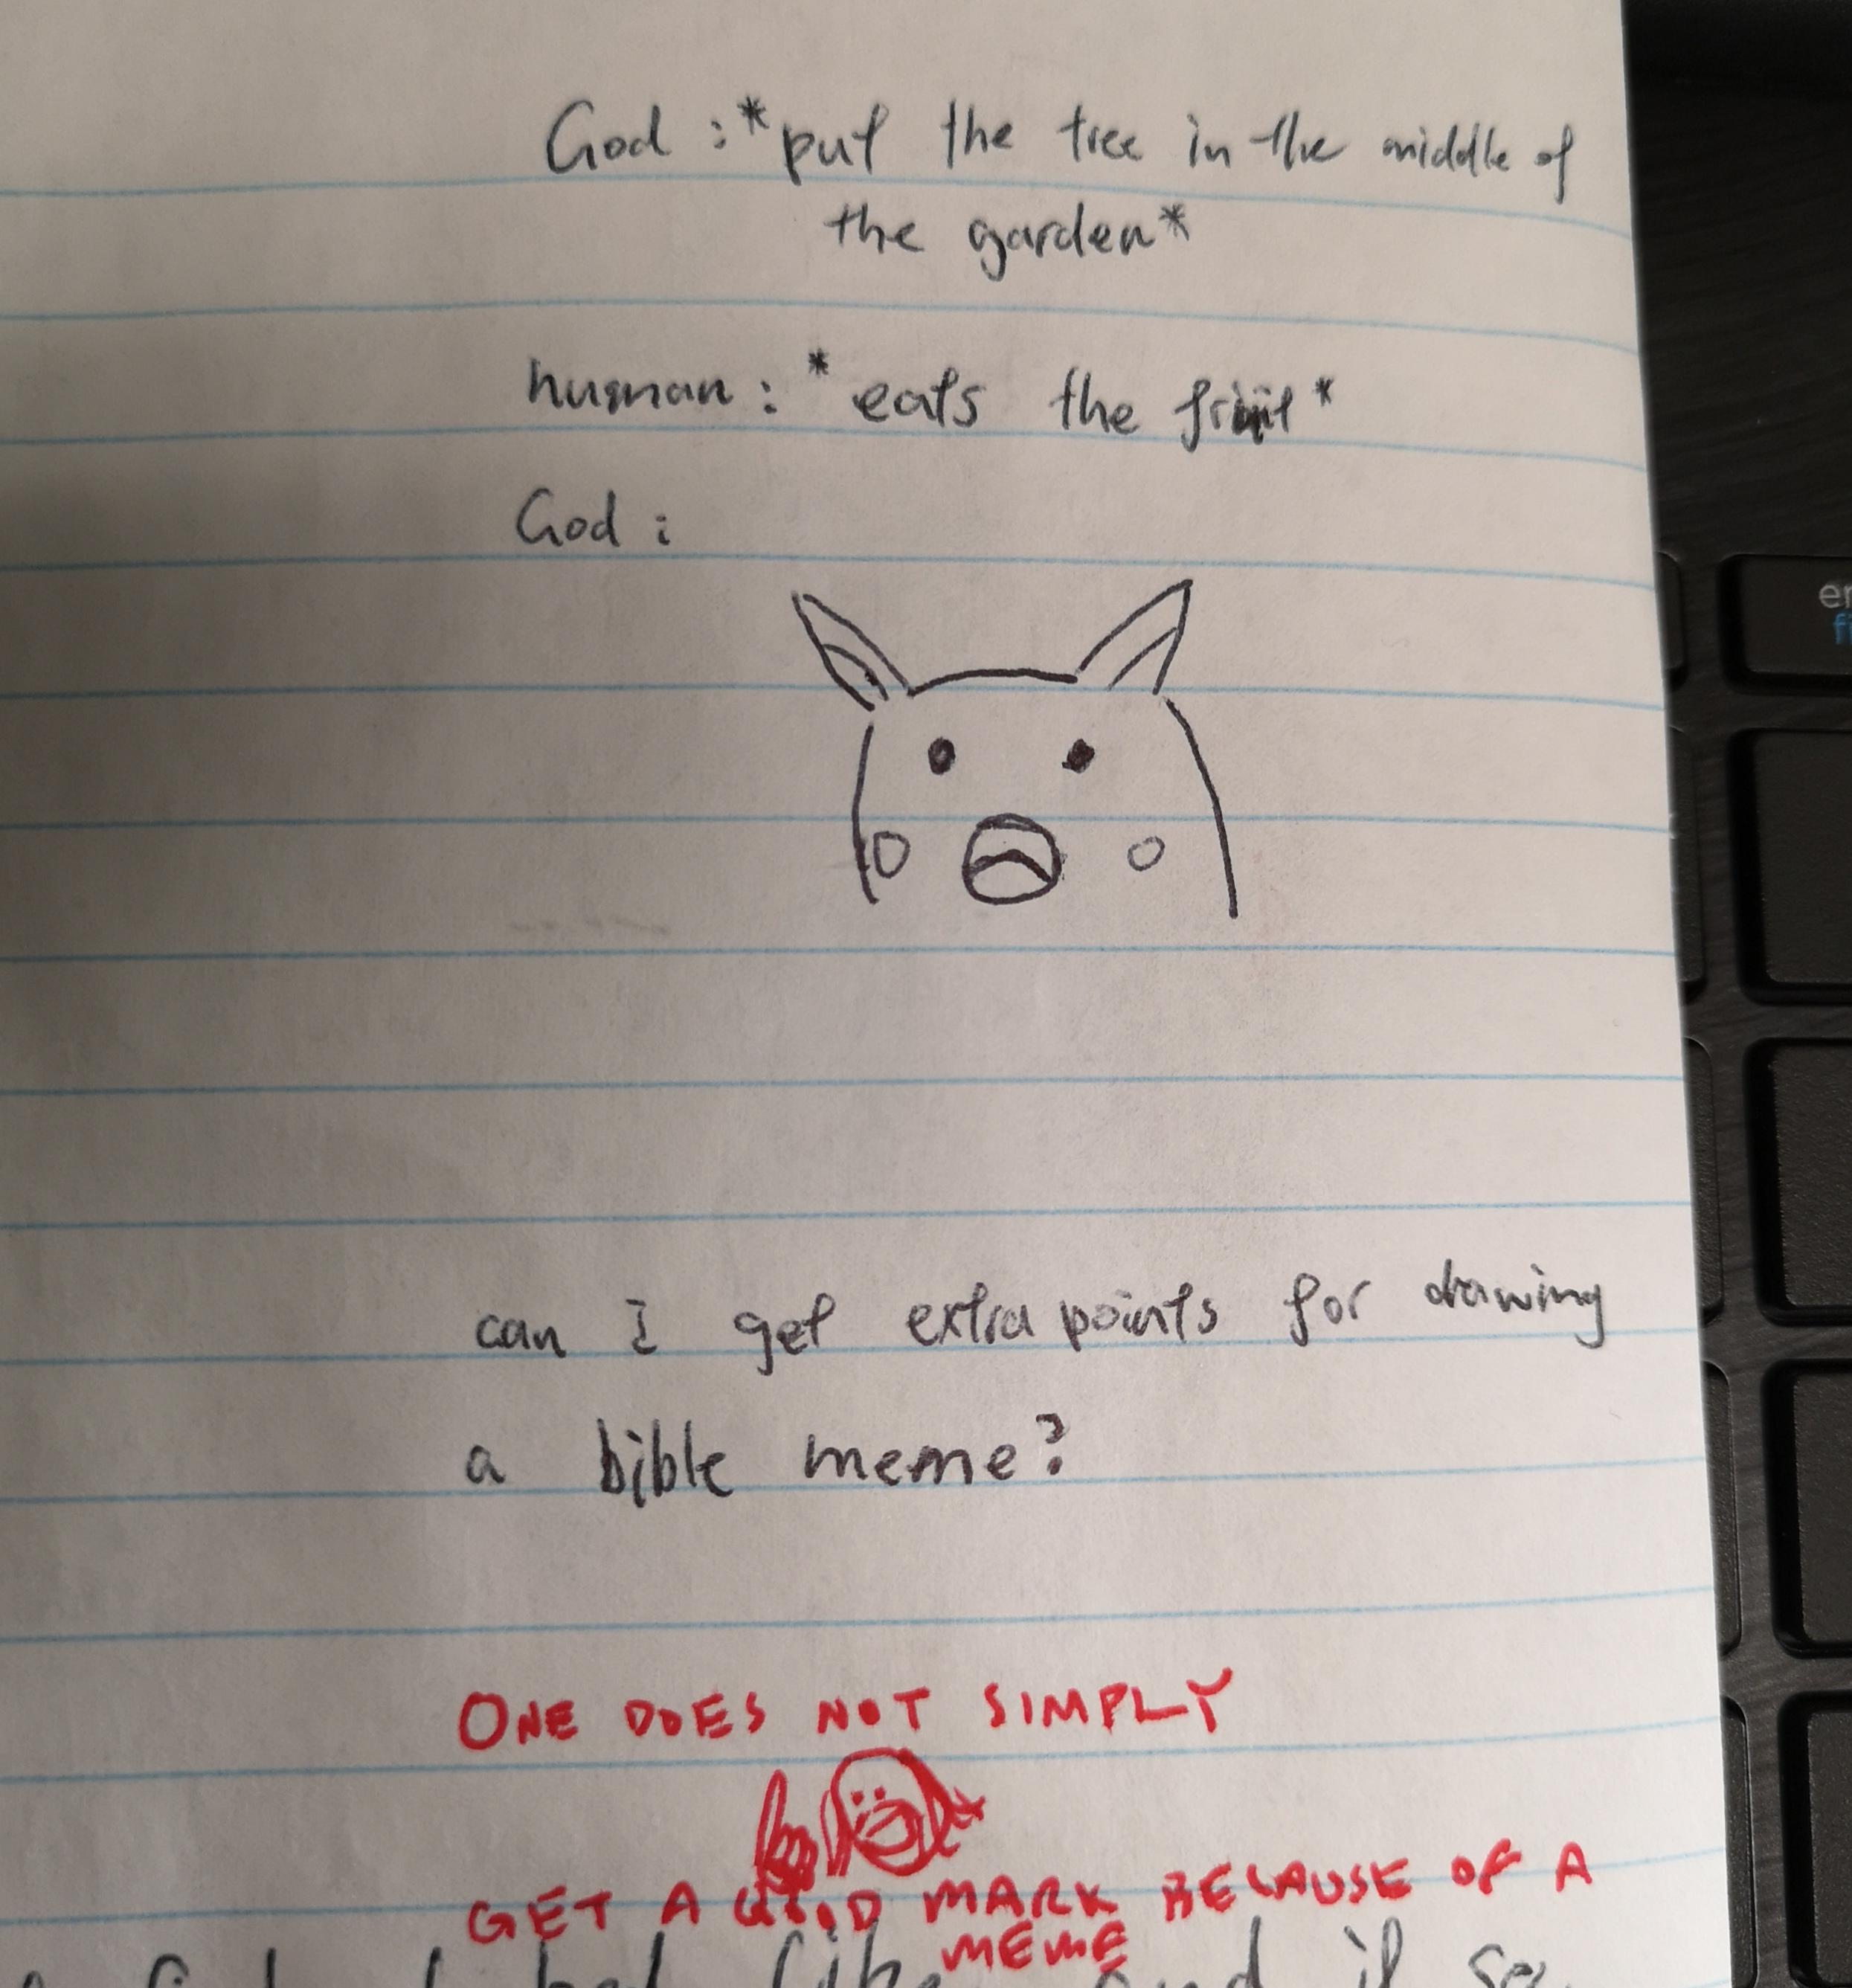 God :*put the tree in the middle of
the garden*
human : *eats the fruit*
God :
can I get extra points for drawing
a bible meme?
ONE DOES NOT SIMPLY
GET A GOOD MARK BECAUSE OF A
MEME